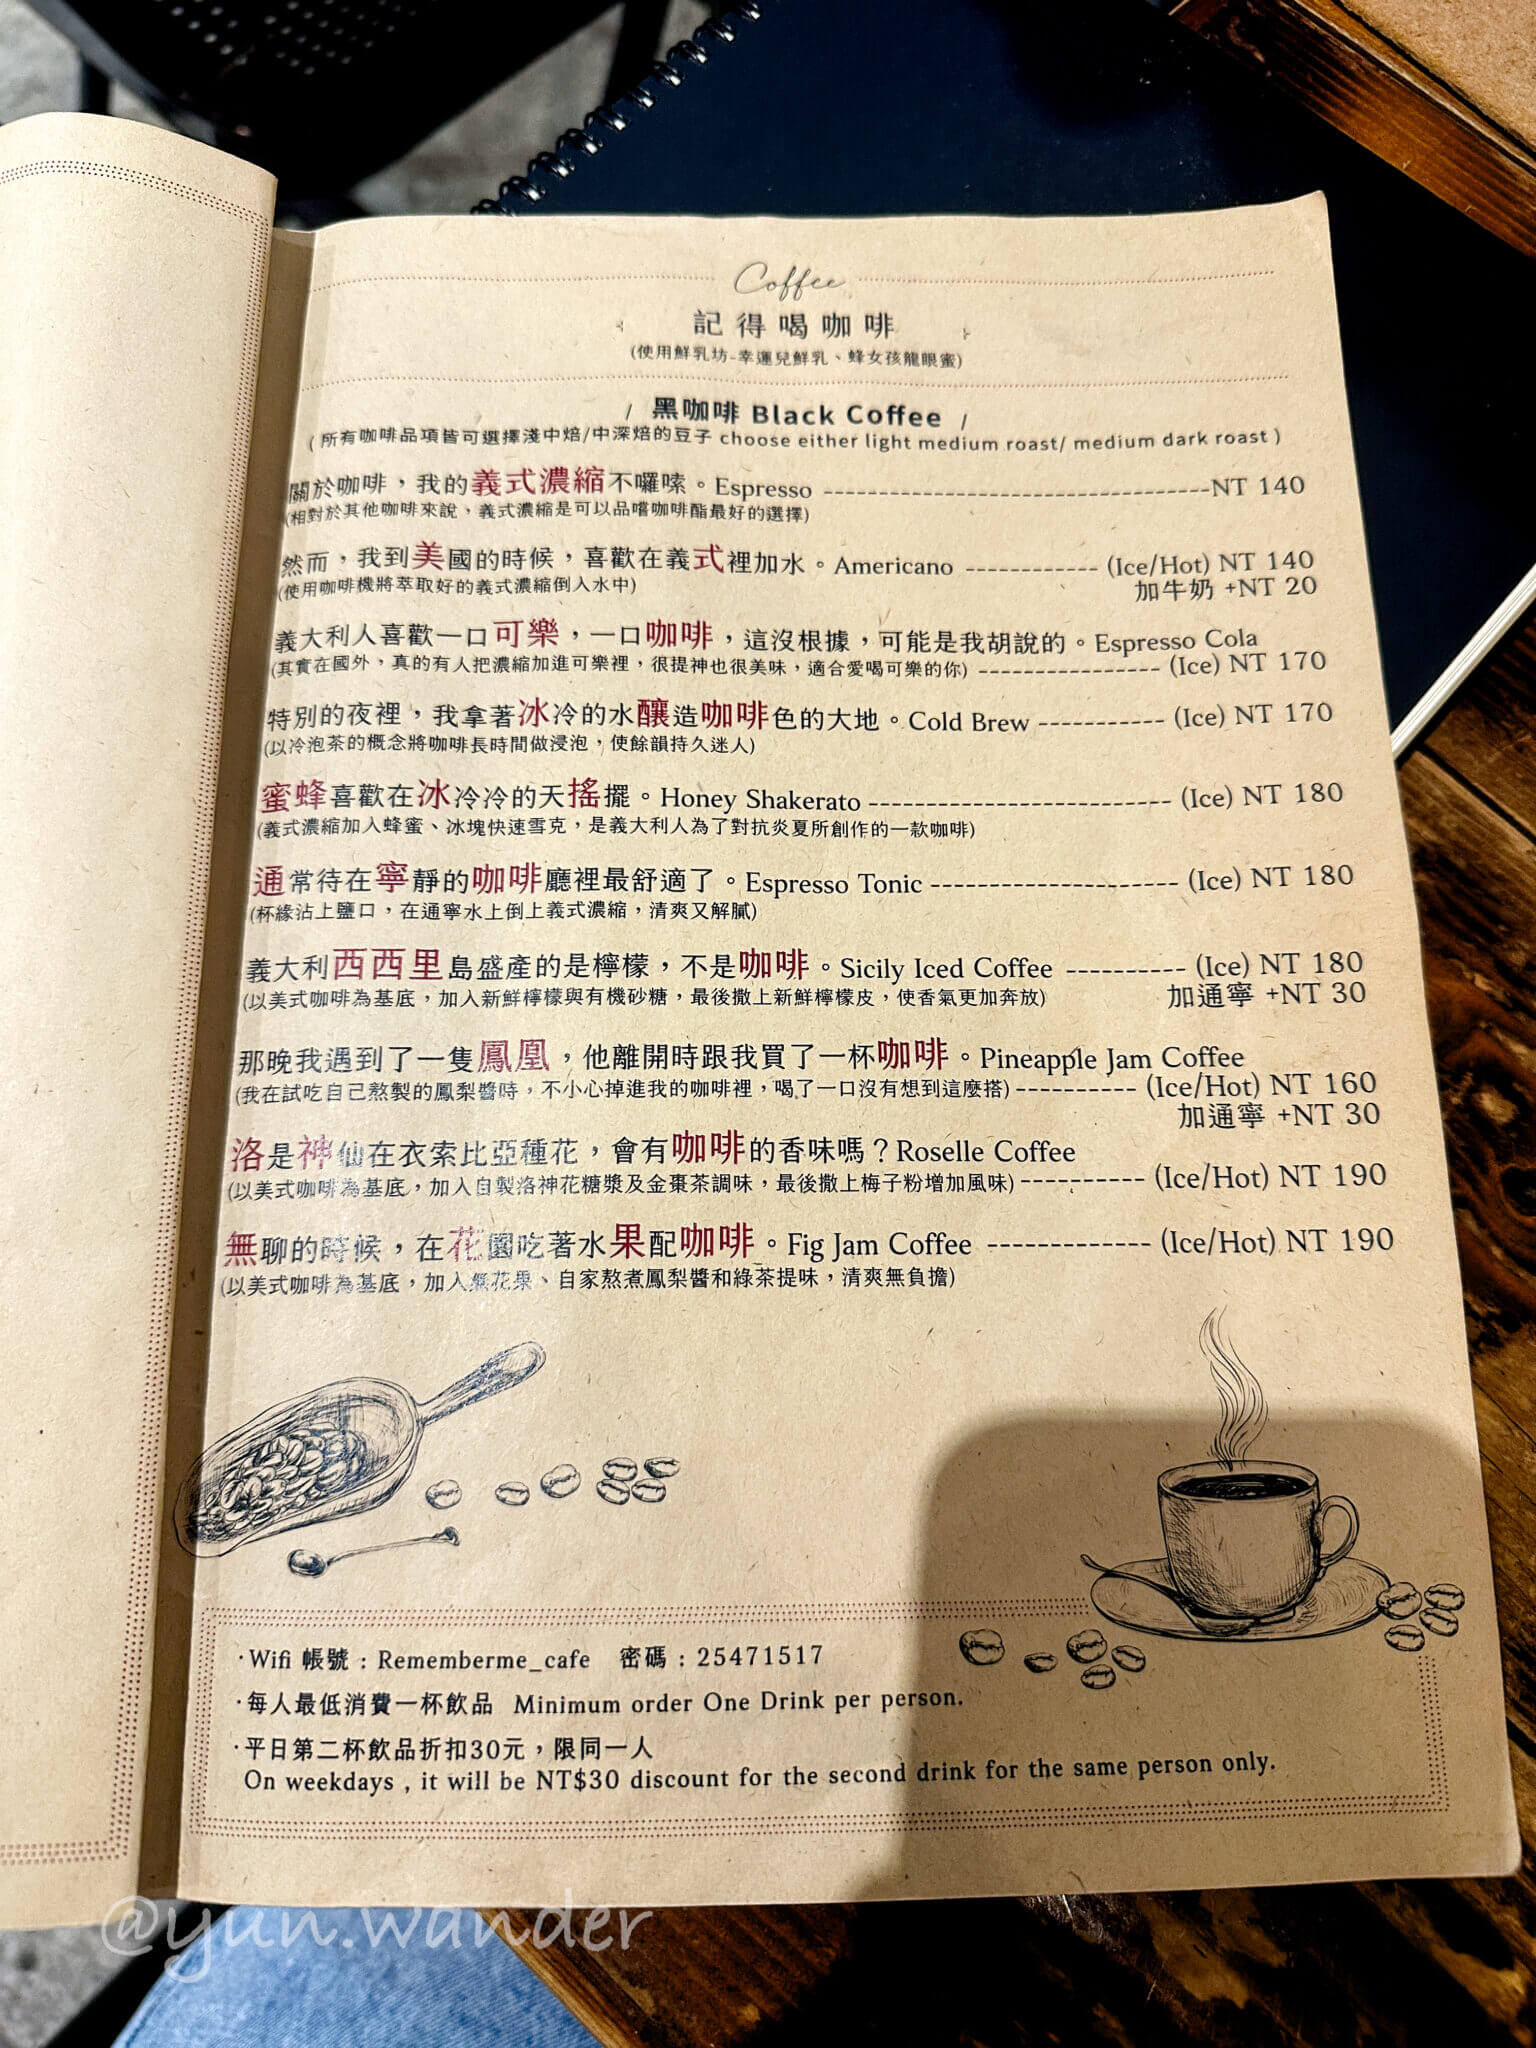 Coffee
記得喝咖啡
(使用鮮乳坊-幸運兒鮮乳、蜂女孩龍眼蜜)
/ 黑咖啡 Black Coffee /
( 所有咖啡品項皆可選擇淺中焙/中深焙的豆子 choose either light medium roast/ medium dark roast )
關於咖啡，我的義式濃縮不囉嗦。Espresso ---------------------------------NT 140
(相對於其他咖啡來說，義式濃縮是可以品嚐咖啡酯最好的選擇)
然而，我到美國的時候，喜歡在義式裡加水。Americano ------------ (Ice/Hot) NT 140
(使用咖啡機將萃取好的義式濃縮倒入水中) 加牛奶 +NT 20
義大利人喜歡一口可樂，一口咖啡，這沒根據，可能是我胡說的。Espresso Cola
(其實在國外，真的有人把濃縮加進可樂裡，很提神也很美味，適合愛喝可樂的你) ---------------- (Ice) NT 170
特別的夜裡，我拿著冰冷的水釀造咖啡色的大地。Cold Brew ----------- (Ice) NT 170
(以冷泡茶的概念將咖啡長時間做浸泡，使餘韻持久迷人)
蜜蜂喜歡在冰冷冷的天搖擺。Honey Shakerato -------------------------- (Ice) NT 180
(義式濃縮加入蜂蜜、冰塊快速雪克，是義大利人為了對抗炎夏所創作的一款咖啡)
通常待在寧靜的咖啡廳裡最舒適了。Espresso Tonic --------------------- (Ice) NT 180
(杯緣沾上鹽口，在通寧水上倒上義式濃縮，清爽又解膩)
義大利西西里島盛產的是檸檬，不是咖啡。Sicily Iced Coffee ---------- (Ice) NT 180
(以美式咖啡為基底，加入新鮮檸檬與有機砂糖，最後撒上新鮮檸檬皮，使香氣更加奔放) 加通寧 +NT 30
那晚我遇到了一隻鳳凰，他離開時跟我買了一杯咖啡。Pineapple Jam Coffee
(我在試吃自己熬製的鳳梨醬時，不小心掉進我的咖啡裡，喝了一口沒有想到這麼搭) ---------- (Ice/Hot) NT 160
加通寧 +NT 30
洛是神仙在衣索比亞種花，會有咖啡的香味嗎？Roselle Coffee
(以美式咖啡為基底，加入自製洛神花糖漿及金棗茶調味，最後撒上梅子粉增加風味) ---------- (Ice/Hot) NT 190
無聊的時候，在花園吃著水果配咖啡。Fig Jam Coffee ------------- (Ice/Hot) NT 190
(以美式咖啡為基底，加入無花果、自家熬煮鳳梨醬和綠茶提味，清爽無負擔)
·Wifi 帳號 : Rememberme_cafe 密碼 : 25471517
·每人最低消費一杯飲品 Minimum order One Drink per person.
·平日第二杯飲品折扣30元，限同一人
On weekdays , it will be NT$30 discount for the second drink for the same person only.
@yun.wander